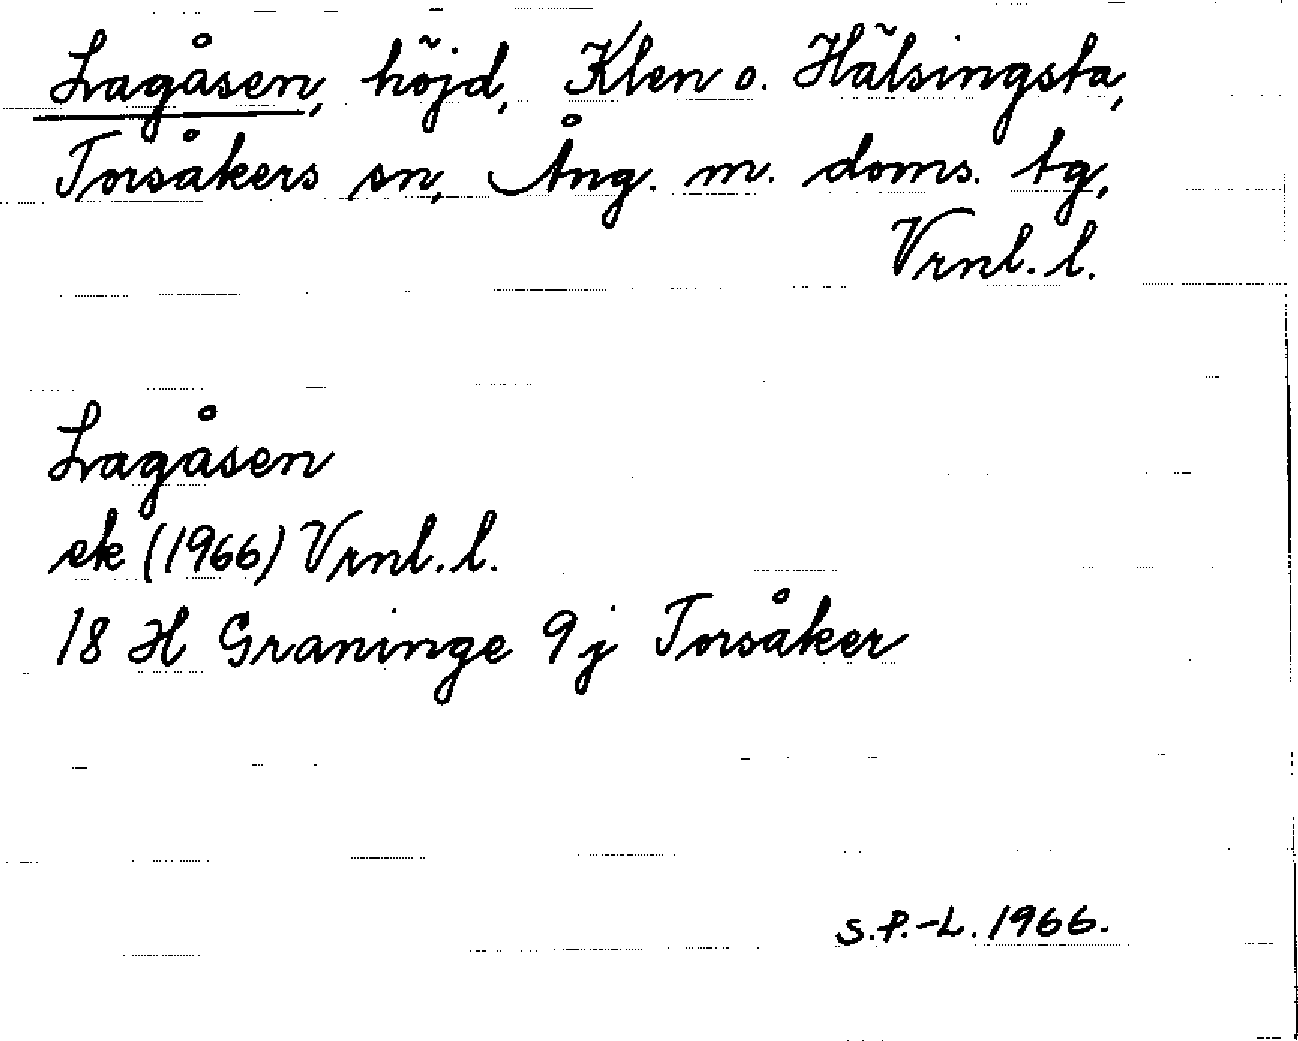 Lagåsen, höjd, Klen o. Hälsingsta,
Torsåkers sn, Ång. m. doms. tg,
Vrnl. l.
Lagåsen
ek (1966) Vrnl. l.
18 H Graninge 9j Torsåker
S.P.-L. 1966.